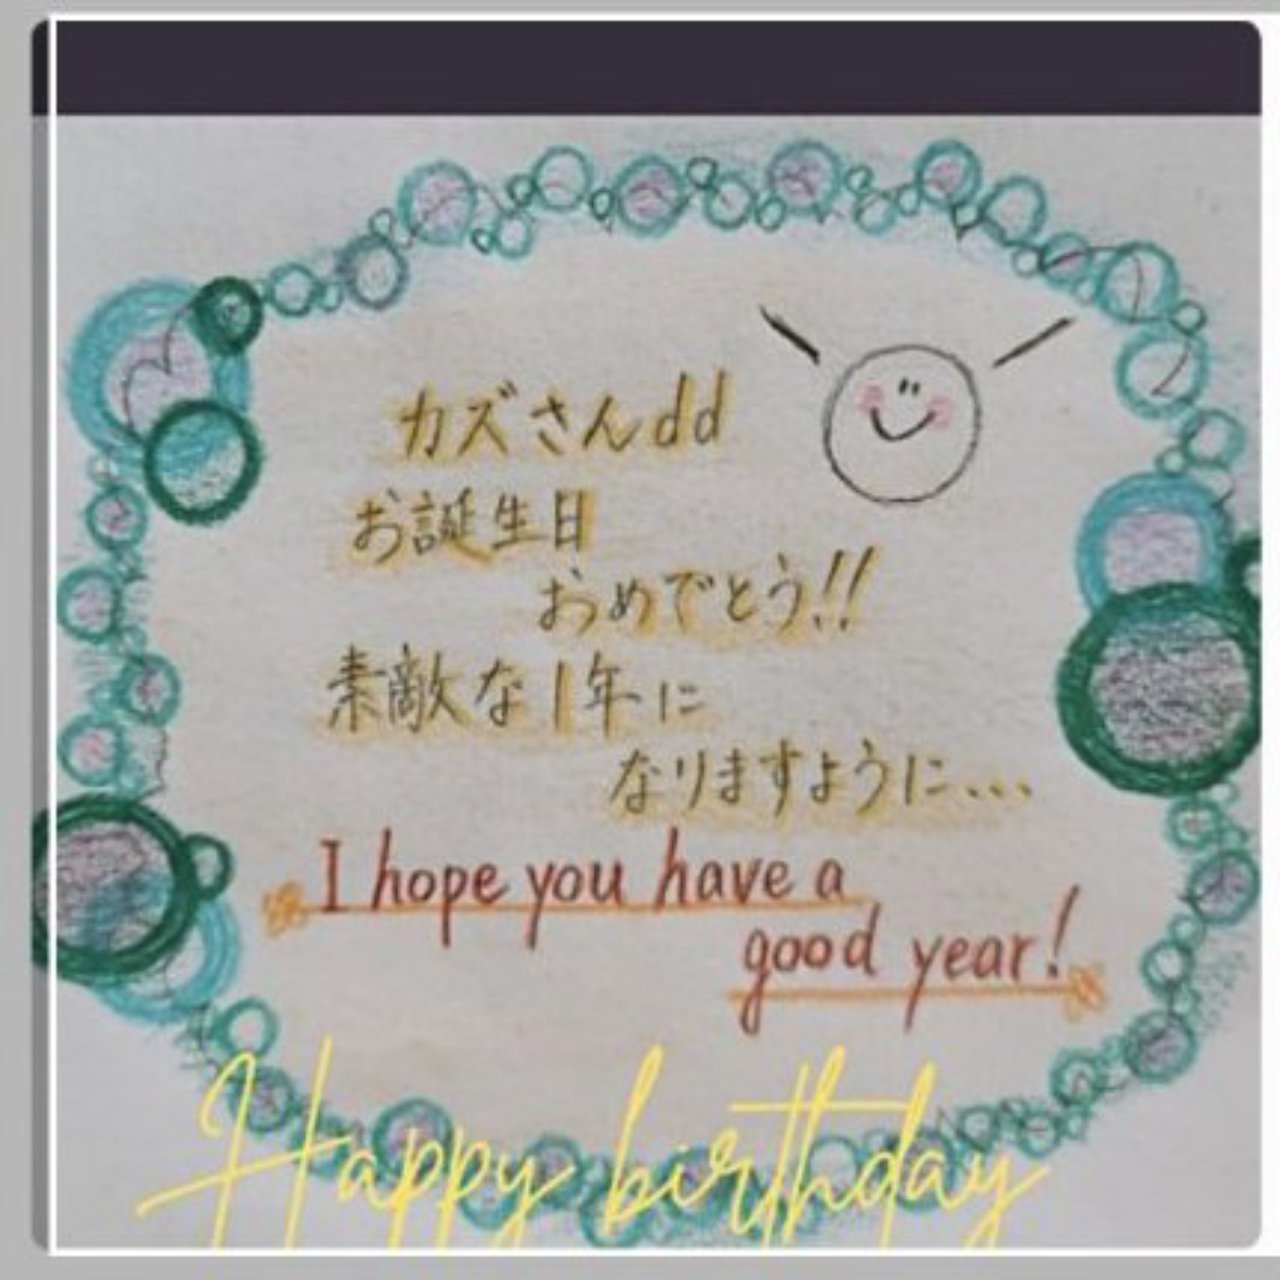 カズさんdd
お誕生日
おめでとう!!
素敵な1年に
なりますように...
I hope you have a
good year!
Happy birthday